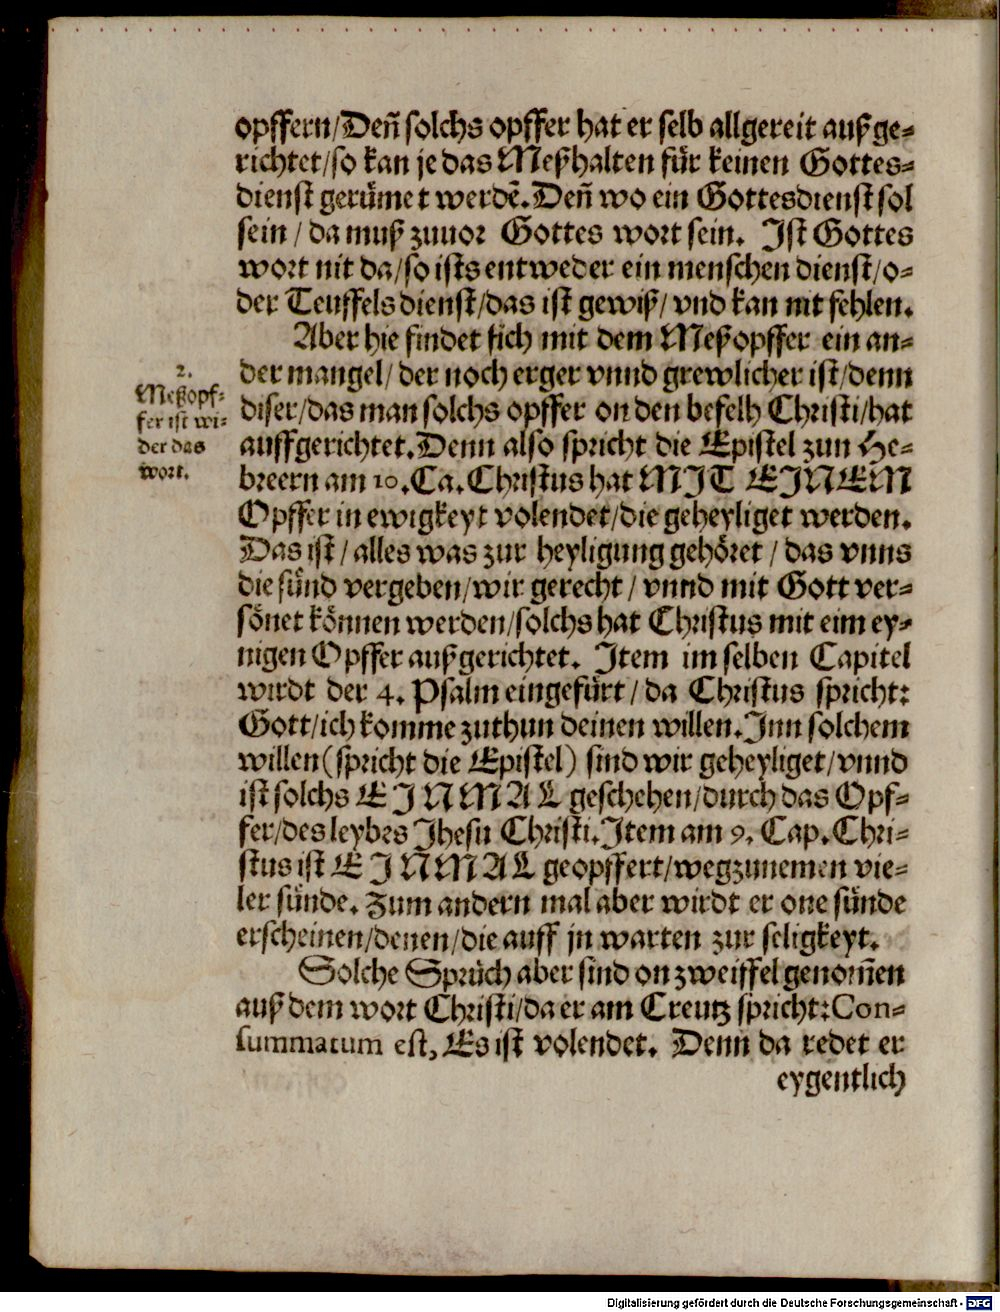 opffern/Deñ solchs opffer hat er selb allgereit außge-
richtet/so kan je das Meßhalten für keinen Gottes-
dienst gerümet werdẽ. Deñ wo ein Gottesdienst sol
sein / da muß zuuor Gottes wort sein. Ist Gottes
wort nit da/so ists entweder ein menschen dienst/o-
der Teuffels dienst/das ist gewiß/ vnd kan nit fehlen.
Aber hie findet sich mit dem Meßopffer ein an-
der mangel/ der noch erger vnnd grewlicher ist/denn
diser/das man solchs opffer on den befelh Christi/hat
auffgerichtet. Denn also spricht die Epistel zun He-
breern am 10. Ca. Christus hat MIT EINEM
Opffer in ewigkeyt volendet/die geheyliget werden.
Das ist / alles was zur heyligung gehöret / das vnns
die sünd vergeben/wir gerecht / vnnd mit Gott ver-
sönet können werden/solchs hat Christus mit eim ey-
nigen Opffer außgerichtet. Item im selben Capitel
wirdt der 4. Psalm eingefürt / da Christus spricht:
Gott/ich komme zuthun deinen willen. Inn solchem
willen (spricht die Epistel) sind wir geheyliget/vnnd
ist solchs EINMAL geschehen/durch das Opf-
fer/des leybes Jhesu Christi. Item am 9. Cap. Chri-
stus ist EINMAL geopffert/wegzunemen vie-
ler sünde. Zum andern mal aber wirdt er one sünde
erscheinen/denen/die auff jn warten zur seligkeyt.
Solche Sprüch aber sind on zweiffel genom̃en
auß dem wort Christi/da er am Creutz spricht: Con-
summatum est, Es ist volendet. Denn da redet er
eygentlich
2.
Meßopf-
fer ist wi-
der das
wort.
Digitalisierung gefördert durch die Deutsche Forschungsgemeinschaft - DFG